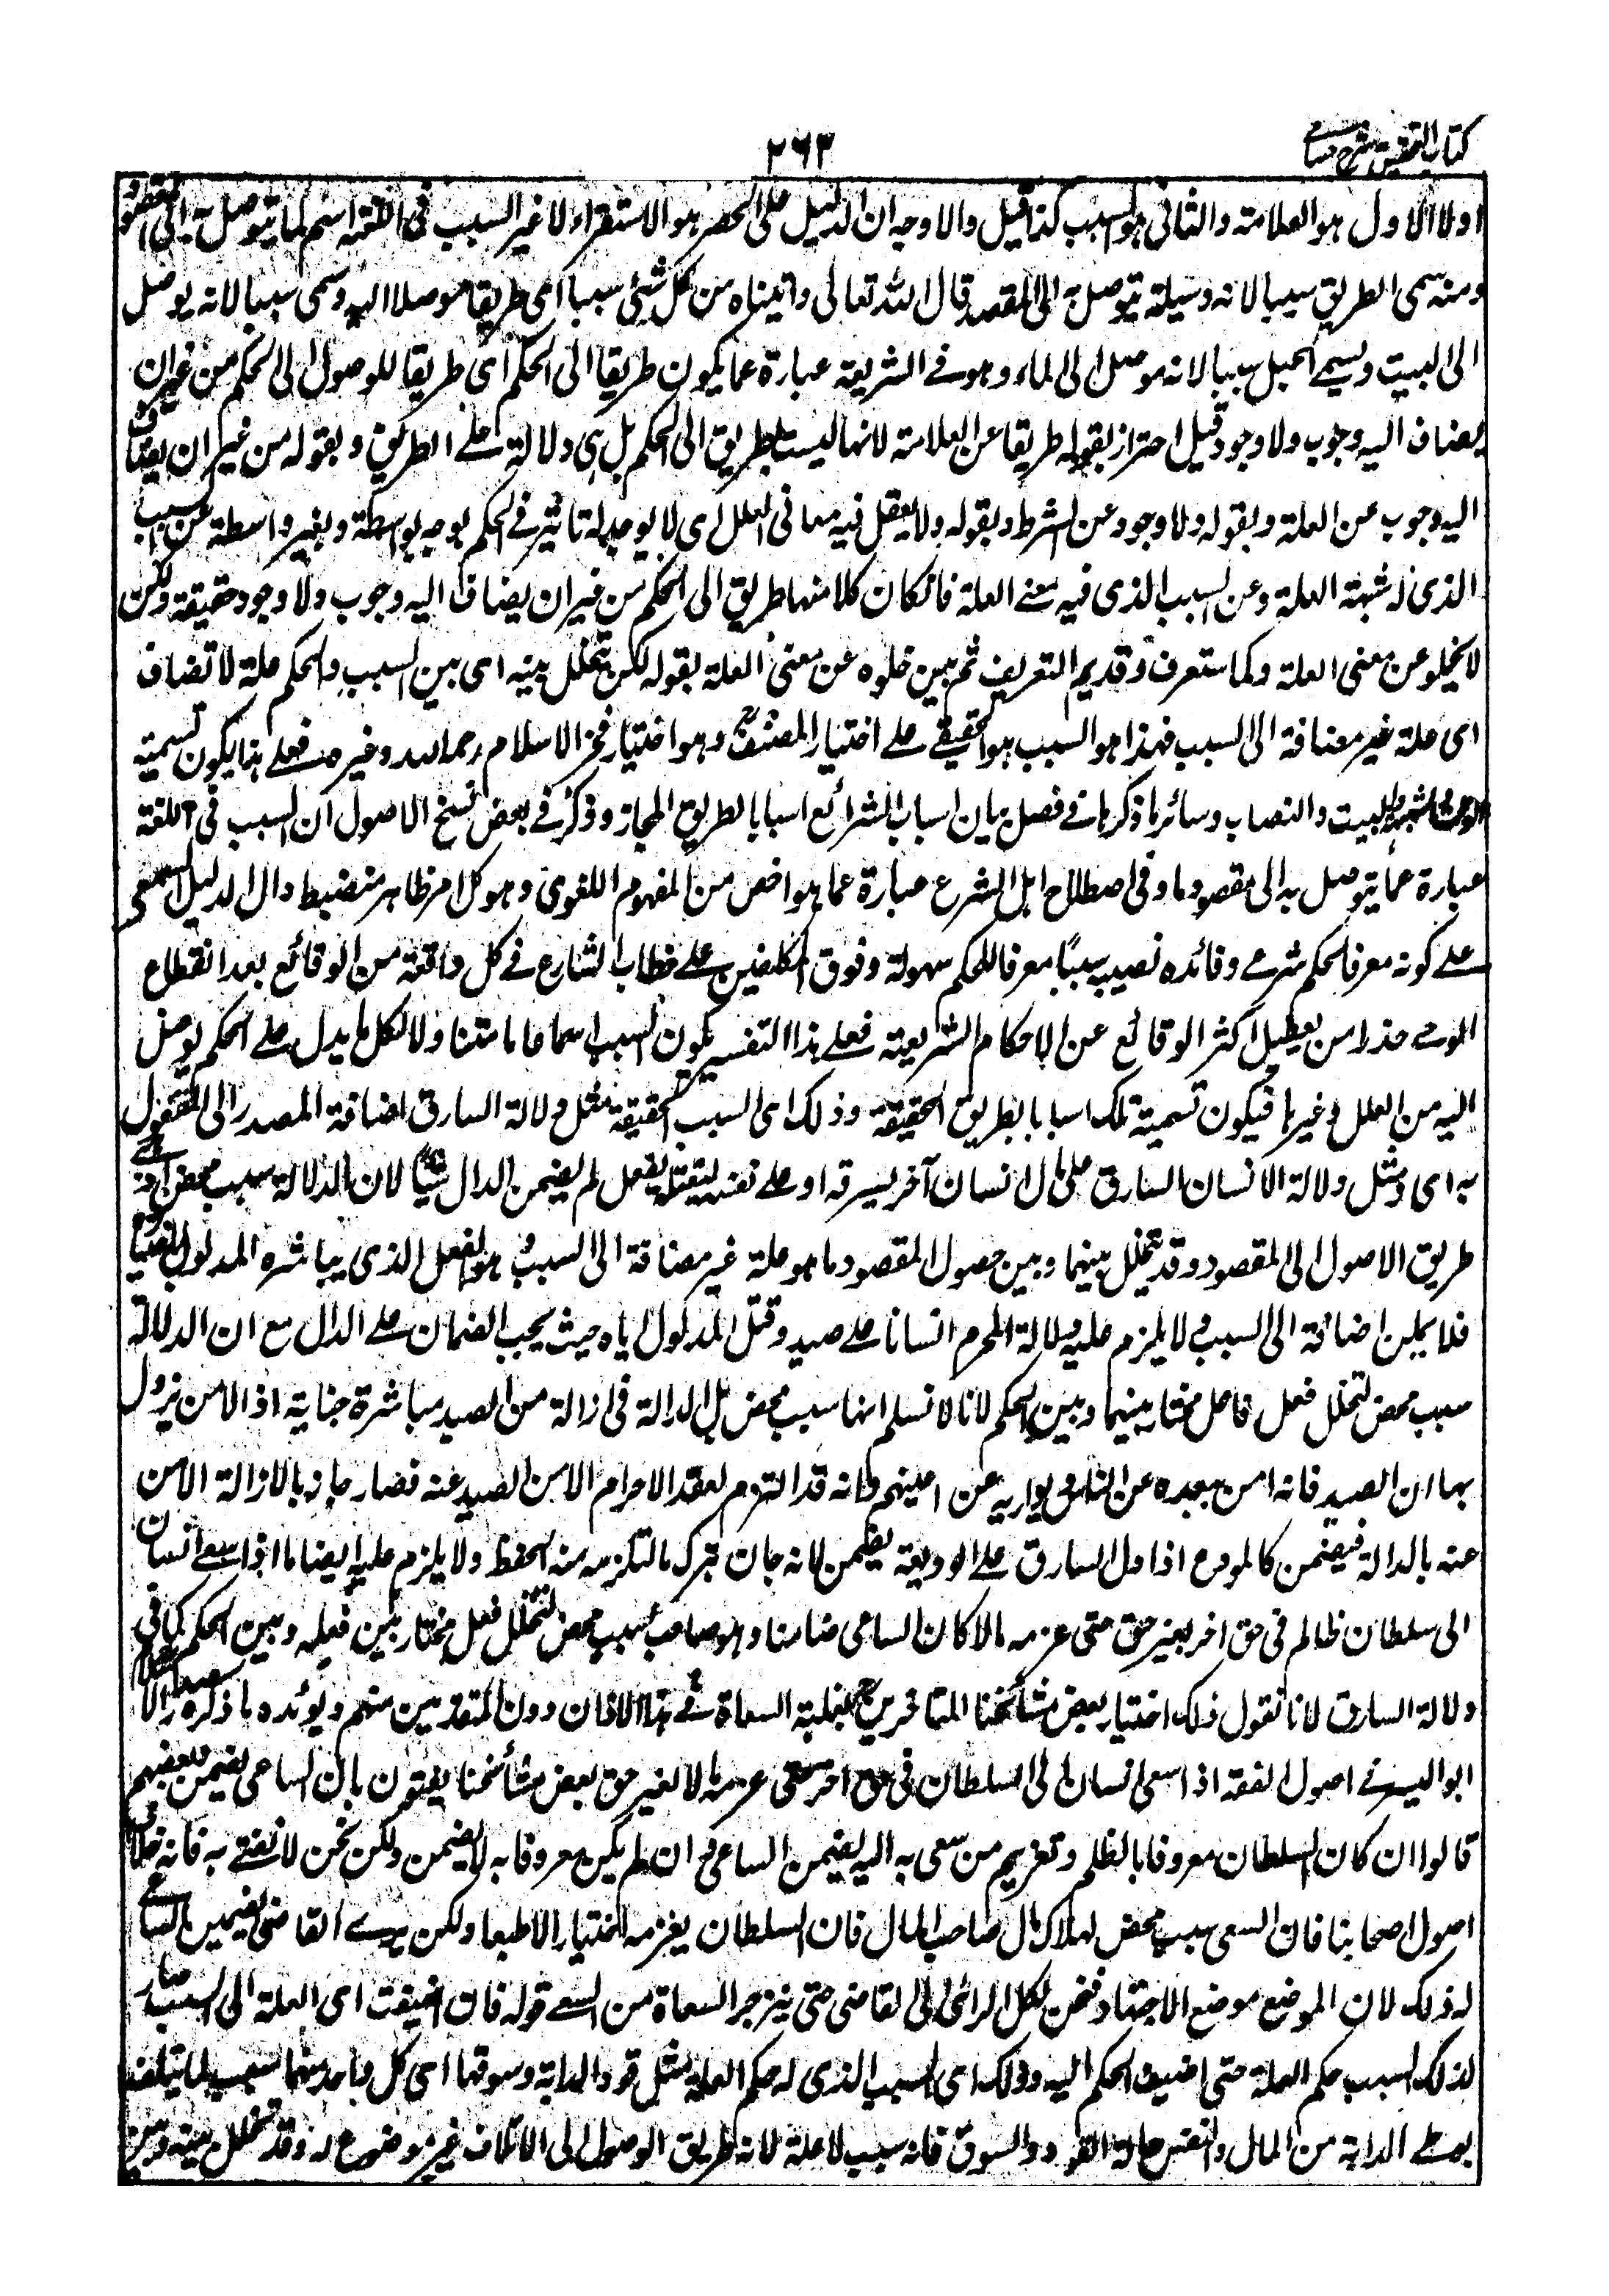 كتاب التحقيق شرح حسامى
٢٦٣
اولا الاول هو العلامة والثانى هو السبب كذا قيل والاوجه ان الدليل على الحصر هو الاستقراء لا غير السبب فى اللغة اسم لما يتوصل به الى المقصود
ومنه سمى الطريق سببا لانه وسيلة يتوصل به الى المقصد قال الله تعالى واتيناه من كل شئى سببا اى طريقا موصلا اليه وسمى سببا لانه يوصل
الى البيت ويسمے الحبل سببا لانه موصل الى الماء وهو فے الشريعة عبارة عما يكون طريقا الى الحكم اى طريقا للوصول الى الحكم من غير ان
يضاف اليه وجوب ولا وجود قيل احترز بقوله طريقا عن العلامة لانها ليست بطريق الى الحكم بل هى دلالة علے الطريق و بقوله من غير ان يضاف
اليه وجوب عن العلة و بقوله ولا وجود عن الشرط و بقوله ولا يعقل فيه معانى العلل اى لا يوجد له تاثير فے الحكم بوجه بواسطة و بغير واسطة عن السبب
الذى له شبهة العلة وعن السبب الذى فيه معنے العلة فان كان كلا منها طريق الى الحكم من غير ان يضاف اليه وجوب ولا وجود حقيقة ولكن
لا يخلو عن معنى العلة وكما ستعرف وقد يم التعريف ثم بين خلوه عن معنى العلة بقوله لكن يتخلل بينه اى بين السبب والحكم علة لا تضاف
اى علة غير مضافة الى السبب فهذا هو السبب هو الحقيقے علے اختيار المصنف وهو اختيار فخر الاسلام رحمه الله وغيره فعلے هذا يكون تسمية
البيت والنصاب وسائر ما ذكرنا فے فصل بيان اسباب الشرائع اسبابا بالطريق المجاز وذكر فے بعض نسخ الاصول ان السبب فى اللغة
عبارة عما يتوصل به الى مقصود ما وفى اصطلاح اهل الشرع عبارة عما هو اخص من المفهوم اللغوى وهو كل امر ظاهر منضبط دال الدليل السمعى
علے كونه معرفا لحكم شرعے وفائده نصب سببًا معرفا للحكم سهولة وقوف المكلفين علے خطاب الشارع فے كل واقعة من الوقائع بعد انقطاع
الوحے حذرا من تعطيل اكثر الوقائع عن الاحكام الشريعة فعلے هذا التفسير يكون السبب اسما عاما متناولا لكل ما يدل علے الحكم يوصل
اليه من العلل وغيرها فيكون تسمية تلك اسبابا بالطريق الحقيقة وذلك اى السبب الحقيقة مثل دلالة السارق اضافة المصدر الى المفعول
به اى ومثل دلالة الانسان السارق على مال انسان آخر يسرقه او علے نفسه ليقتله ففعل لم يضمن الدال شيئًا لان الدلالة سبب محض اذ هے
طريق الاصول الى المقصود وقد تخلل بينها وبين حصول المقصود ما هو علة غير مضافة الى السبب هو الفعل الذى يباشره المدلول
فلا يمكن اضافته الى السبب ولا يلزم عليه دلالة المحرم انسانا علے صيد وقتل المدلول اياه حيث يجب الضمان علے الدال مع ان الدلالة
سبب محض لتخلل فعل فاعل مختار بينها وبين الحكم لانا لا نسلم انها سبب محض بل الدلالة فى ازالة من الصيد مباشرة جناية اذ الامن يزول
بها ان الصيد فانه امن ببعده عن الناس و يواريه عن اعينهم وانه قد التزم بعقد الاحرام الامن الصيد عنه فصار جانيا بالازالة الامن
عنه بالدلالة فيضمن كالمودع اذا دل السارق علے الوديعة يضمن لانه جان بترك ما التزمه منه الحفظ ولا يلزم عليه ايضا ما اذا سعے انسان
الى سلطان ظالم فى حق اخر بغير حق حتى غرمه مالا كان الساعى ضامنا وهو صاحب سبب محض لتخلل فعل مختار بين فعله وبين الحكم كما فى
دلالة السارق لانا نقول ذلك اختيار بعض مشائخنا المتاخرين لغلبة السعاة فے هذا الزمان دون المتقدمين منهم ويؤيده ما ذكره صدر الاسلام
ابو اليسر فے اصول الفقه اذا سعى انسان الى السلطان فى حق اخر حتى غرمه مالا بغير حق بعض مشائخنا يفتون بان الساعى يضمن بعضهم
قالوا ان كان السلطان معروفا بالظلم وتغريم من سعى به اليه يضمن الساعى و ان لم يكن معروفا به لا يضمن ولكن نحن لا نفتے به فانه خلاف
اصول اصحابنا فان السعى سبب محض لهلاك مال صاحب المال فان السلطان يغرمه اختيارا لا طبعا ولكن يرے القاضى تضمين الساعے
له ذلك لان الموضع موضع الاجتهاد فنحن نكل الراى الى القاضى حتى ينزجر السعاة من السعے قوله فان اضيفت اى العلة الى السبب صار
لذلك السبب حكم العلة حتى اضيف الحكم اليه وذلك اى السبب الذى له حكم العلة مثل قود الدابة وسوقها اى كل واحد منهما سبب لما يتلف
بوطے الدابة من المال والنفس حالة القود والسوق فانه سبب لا علة لانه طريق الوصول الى الاتلاف غير موضوع له وقد تخلل بينه وبين